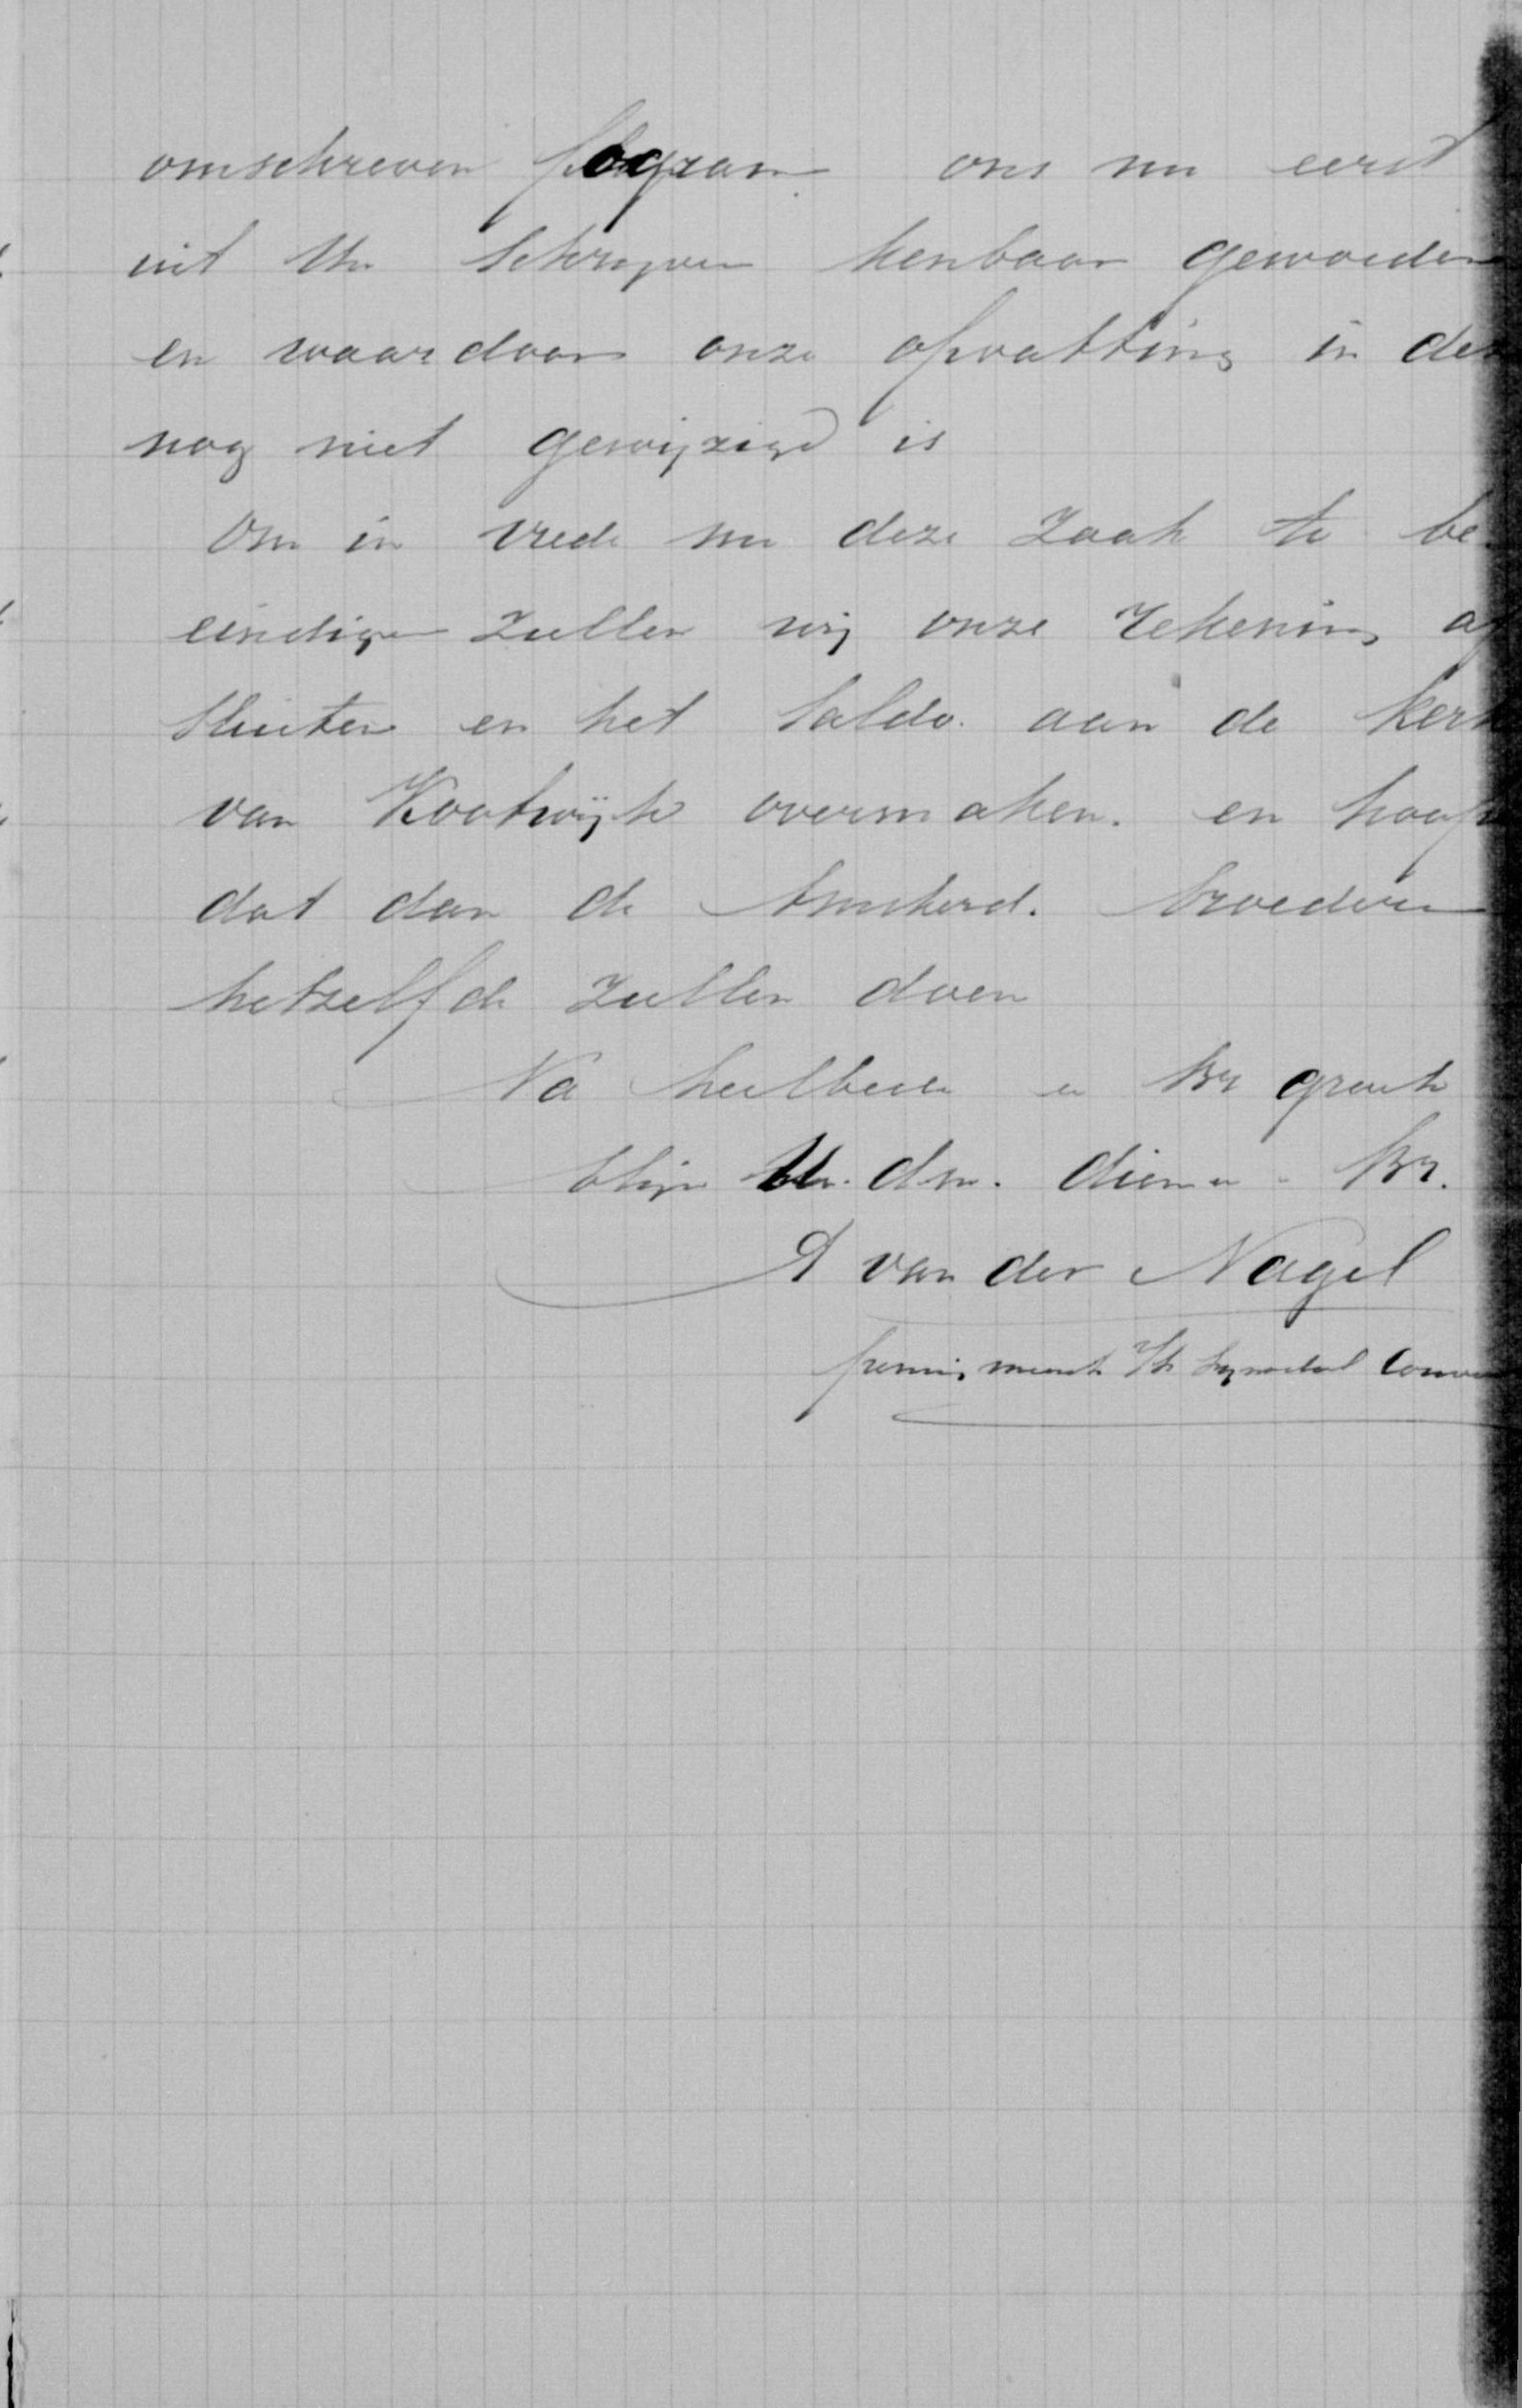 omschreven program ons nu eerst
uit Uw schrijven kenbaar geworden
en waardoor onze opvatting in de
nog niet gewijzigd is
Om in vrede nu deze zaak te be-
eindigen zullen wij onze rekening af
sluiten en het saldo aan de kerk
van Kootwijk overmaken. en hoop
dat dan de Amsterd. broeders
hetzelfde zullen doen
Na heilbede en br groete
blijv Uw. dw. dienr en br.
A van der Nagel
penningmeester Synodaal Conv